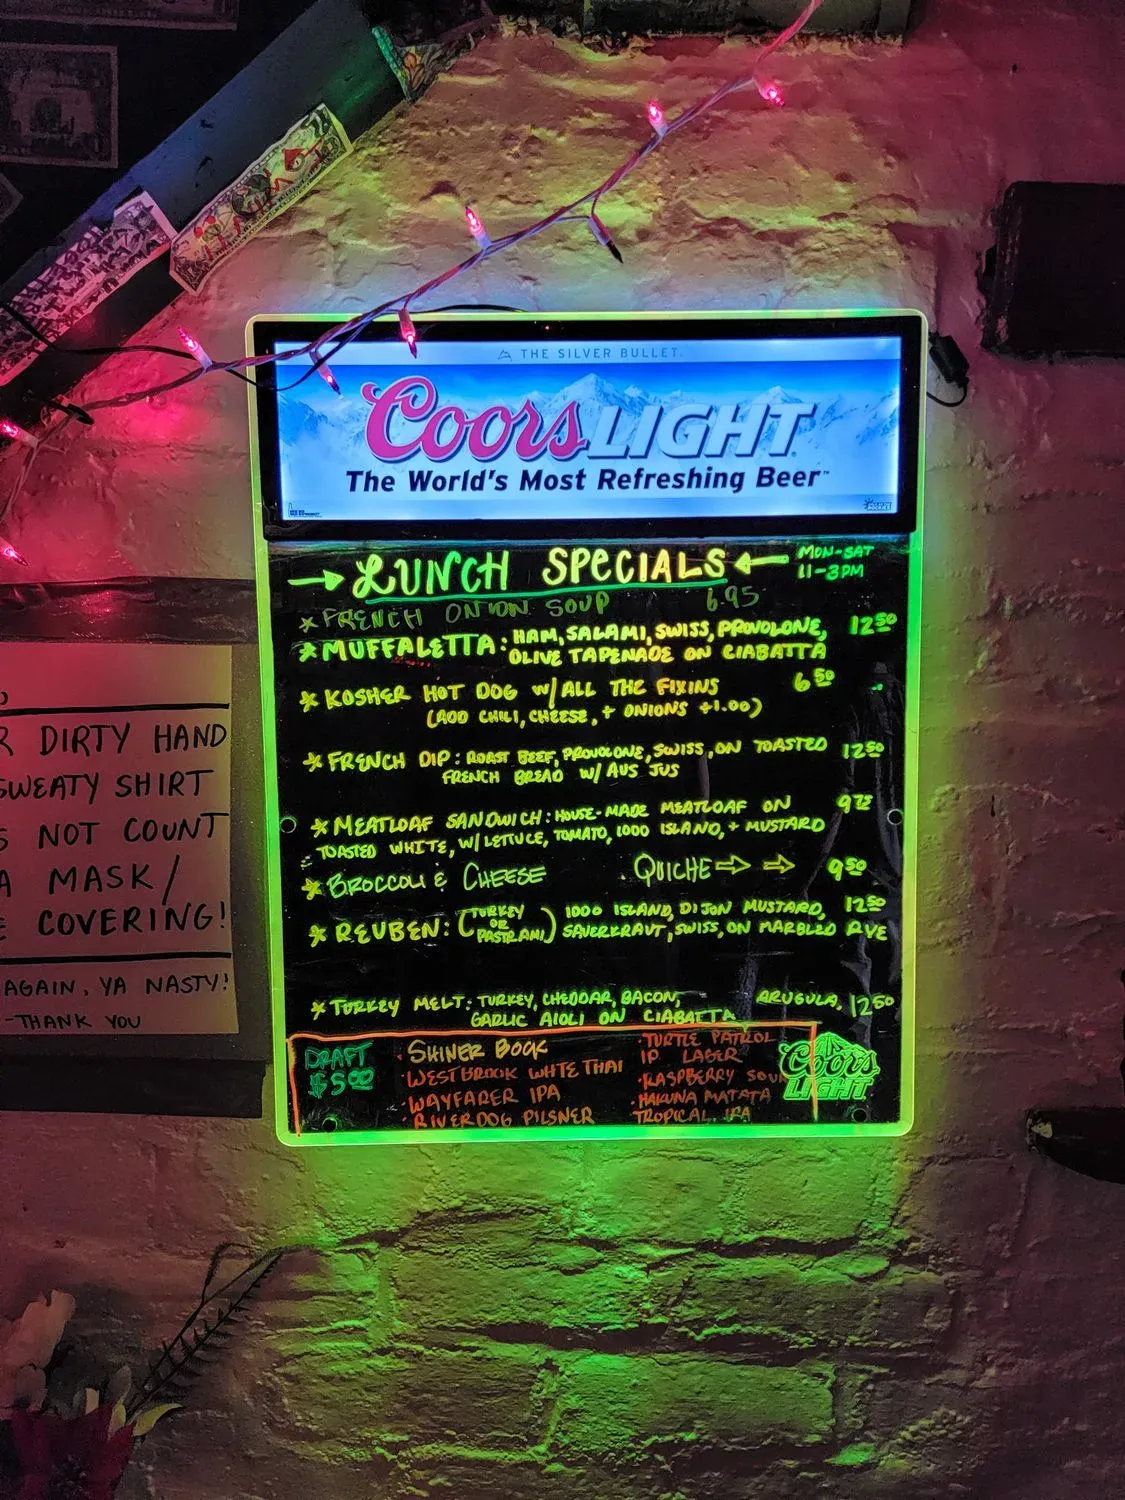 THE SILVER BULLET.
Coors LIGHT
The World's Most Refreshing Beer™
→ LUNCH SPECIALS ← MON-SAT
11-3PM
* FRENCH ONION SOUP 6.95
* MUFFALETTA: HAM, SALAMI, SWISS, PROVOLONE, 12.50
OLIVE TAPENADE ON CIABATTA
* KOSHER HOT DOG W/ ALL THE FIXINS 6.50
(ADD CHILI, CHEESE, + ONIONS +1.00)
* FRENCH DIP: ROAST BEEF, PROVOLONE, SWISS, ON TOASTED 12.50
FRENCH BREAD W/ AUS JUS
* MEATLOAF SANDWICH: HOUSE-MADE MEATLOAF ON
TOASTED WHITE, W/ LETTUCE, TOMATO, 1000 ISLAND, + MUSTARD
* BROCCOLI & CHEESE QUICHE ⇒ ⇒ 9.50
* REUBEN: (TURKEY OR PASTRAMI) 1000 ISLAND, DIJON MUSTARD, 12.50
SAUERKRAUT, SWISS, ON MARBLED RYE
* TURKEY MELT: TURKEY, CHEDDAR, BACON, ARUGULA, 12.50
GARLIC AIOLI ON CIABATTA
DRAFT
$5.00
· SHINER BOCK
· WESTBROOK WHITE THAI
· WAYFARER IPA
· RIVERDOG PILSNER
· TURTLE PATROL
IP LAGER
· RASPBERRY SOUR
· HAKUNA MATATA
TROPICAL IPA
Coors
LIGHT
R DIRTY HAND
SWEATY SHIRT
S NOT COUNT
A MASK/
E COVERING!
AGAIN, YA NASTY!
-THANK YOU